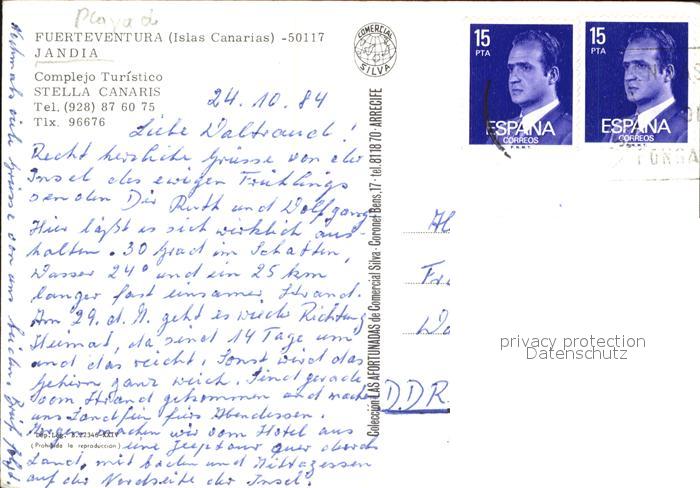 Playa d
FUERTEVENTURA (Islas Canarias) -50117
JANDIA
Complejo Turístico
STELLA CANARIS
Tel. (928) 87 60 75
Tlx. 96676
COMERCIAL
SILVA
15
PTA
ESPAÑA
CORREOS
F.N.M.T.
15
PTA
ESPAÑA
CORREOS
F.N.M.T.
24.10.84
Liebe Waltraud!
Recht herzliche Grüsse von der
Insel des ewigen Frühlings
senden Dir Ruth und Wolfgang
Hier läßt es sich wirklich aus-
halten. 30 Grad im Schatten,
Wasser 24° und ein 25 km
langer fast einsamer Strand.
Am 29. d. M. geht es wieder Richtung
Heimat, da sind 14 Tage um
und das reicht. Sonst wird das
Gehirn ganz weich. Sind gerade
vom Strand gekommen und machen
uns landfein fürs Abendessen.
Morgen machen wir vom Hotel aus
eine Jeeptour quer durchs
Land, mit baden und Mittagessen
auf der Nordseite der Insel.
Dep. Leg. B. 22346-XXIV
(Prohibida la reproducción)
Nochmals viele Grüsse von uns beiden. Brief folgt
Colección LAS AFORTUNADAS de Comercial Silva - Coronel Bens, 17 - tel. 81 18 70 - ARRECIFE
Fr
DDR
privacy protection
Datenschutz